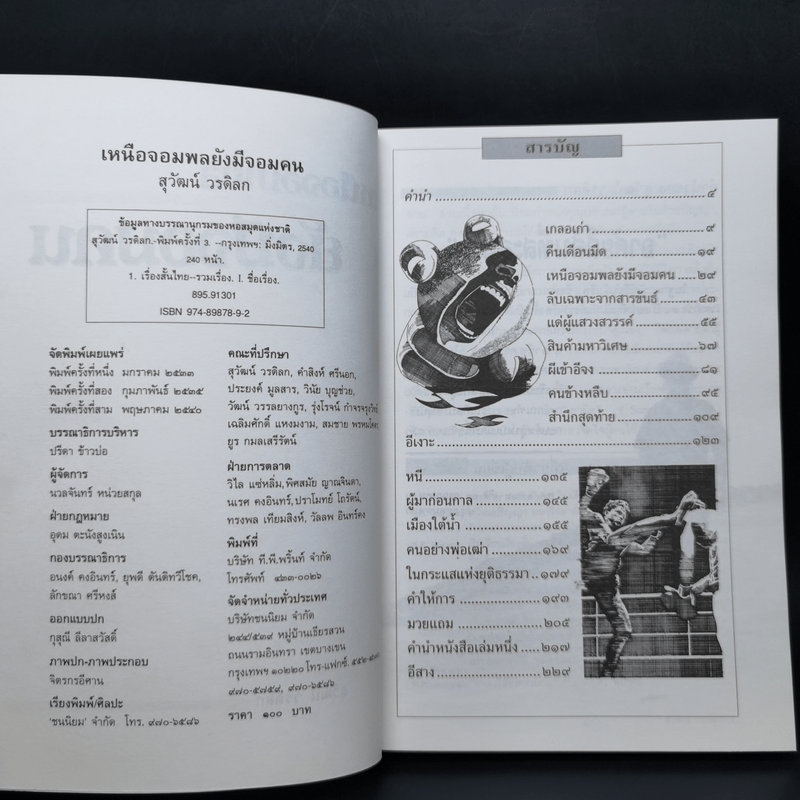 เหนือจอมพลยังมีจอมคน
สุวัฒน์ วรดิลก
ข้อมูลทางบรรณานุกรมของหอสมุดแห่งชาติ
สุวัฒน์ วรดิลก.-พิมพ์ครั้งที่ 3. --กรุงเทพฯ: มิ่งมิตร, 2540
240 หน้า.
1. เรื่องสั้นไทย--รวมเรื่อง. I. ชื่อเรื่อง.
895.91301
ISBN 974-89878-9-2
จัดพิมพ์เผยแพร่
พิมพ์ครั้งที่หนึ่ง มกราคม ๒๕๓๓
พิมพ์ครั้งที่สอง กุมภาพันธ์ ๒๕๓๕
พิมพ์ครั้งที่สาม พฤษภาคม ๒๕๔๐
บรรณาธิการบริหาร
ปรีดา ข้าวบ่อ
ผู้จัดการ
นวลจันทร์ หน่วยสกุล
ฝ่ายกฎหมาย
อุดม ตะนังสูงเนิน
กองบรรณาธิการ
อนงค์ คงอินทร์, ยุพดี ตันติทวีโชค,
ลักขณา ศรีหงส์
ออกแบบปก
กุสุณี ลีลาสวัสดิ์
ภาพปก-ภาพประกอบ
จิตรกรอีศาน
เรียงพิมพ์/ศิลปะ
'ชนนิยม' จำกัด โทร. ๙๗๐-๖๕๘๖
คณะที่ปรึกษา
สุวัฒน์ วรดิลก, คำสิงห์ ศรีนอก,
ประยงค์ มูลสาร, วินัย บุญช่วย,
วัฒน์ วรรลยางกูร, รุ่งโรจน์
เฉลิมศักดิ์ แหงมงาม, สมชาย
ยูร กมลเสรีรัตน์
ฝ่ายการตลาด
วิไล แซ่หลิ่ม, พิศสมัย ญาณจินดา,
นเรศ คงอินทร์, ปราโมทย์ โถรัตน์,
ทรงพล เทียมสิงห์, วัลลพ อินทร์คง
พิมพ์ที่
บริษัท ที.พี.พริ้นท์ จำกัด
โทรศัพท์ ๔๓๓-๐๐๒๖
จัดจำหน่ายทั่วประเทศ
บริษัทชนนิยม จำกัด
๒๔๔/๕๓๙ หมู่บ้านเธียรสวน
ถนนรามอินทรา เขตบางเขน
กรุงเทพฯ ๑๐๒๒๐ โทร-แฟกซ์.
๙๗๐-๕๗๕๙, ๙๗๐-๖๕๘๖
ราคา ๑๐๐ บาท
สารบัญ
คำนำ ๔
เกลอเก่า ๙
คืนเดือนมืด ๑๙
เหนือจอมพลยังมีจอมคน ๒๙
ลับเฉพาะจากสารขันธ์ ๔๓
แด่ผู้แสวงสวรรค์ ๕๕
สินค้ามหาวิเศษ ๖๗
ผีเช้าอีจง ๘๑
คนข้างหลืบ ๙๕
สำนึกสุดท้าย ๑๐๙
อีเงาะ ๑๒๓
หนี ๑๓๕
ผู้มาก่อนกาล ๑๔๕
เมืองใต้น้ำ ๑๕๕
คนอย่างพ่อเฒ่า ๑๖๙
ในกระแสแห่งยุติธรรมา ๑๗๙
คำให้การ ๑๙๓
มวยแถม ๒๐๕
คำนำหนังสือเล่มหนึ่ง ๒๑๗
อีสาง ๒๒๙